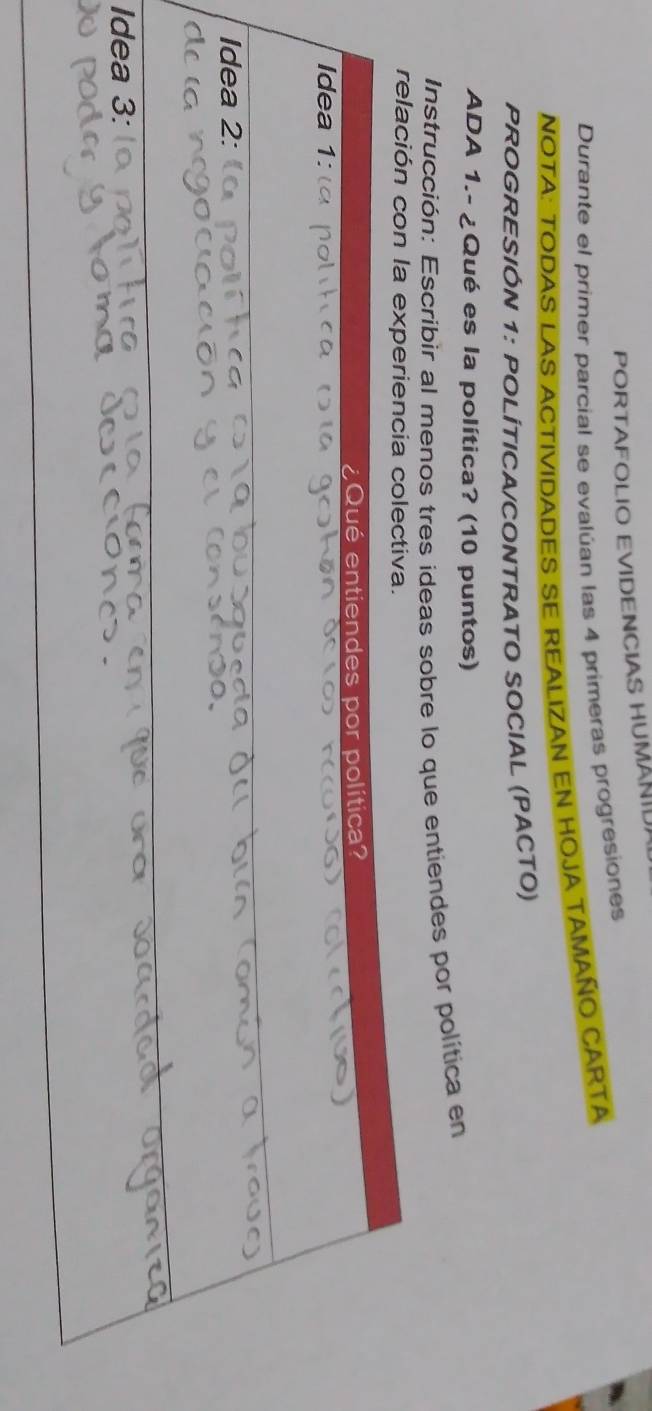 PORTAFOLIO EVIDENCIAS
Durante el primer parcial se evalúan las 4 primeras progresiones
NOTA: TODAS LAS ACTIVIDADES SE REALIZAN EN HOJA TAMAÑO CARTA
PROGRESIÓN 1: POLÍTICA/CONTRATO SOCIAL (PACTO)
ADA 1.- ¿Qué es la política? (10 puntos)
Instrucción: Escribir al menos tres ideas sobre lo que entiendes por política en
relación con la experiencia colectiva.
¿Qué entiendes por política?
Idea 1: la politica es la gestion de los recursos colectivos
Idea 2: la política es la busqueda del bien común a traves
de la negociación y el consenso.
Idea 3: la política es la forma en que una sociedad organiza
su poder y toma decciones.